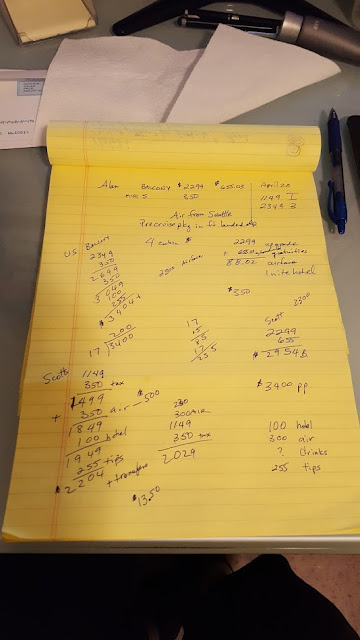 Alan Balcony $2299 $655.03 April 20
misc S 350 1149 I
2349 B
Air from Seattle
Precruise pkg in ft
US Balcony
4 $ 2299 upgrade
2349
350
2699
350
3049
100
255
$3404+
airfare airfare
88.02
1 nite hotel
$350
200
17 3400
17
15
85
17
255
2300
Scott
2299
655
$2954
$3400 pp
Scott 1149
350 tax
1499
+ 350 air — $500
1849
100 hotel
1949
255 tips
$2204 + transfers
230
300 AIR
1149
350 tax
2029
100 hotel
300 air
? drinks
255 tips
$1350